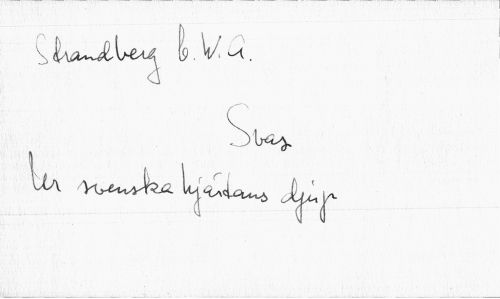 Strandberg C.W.A.
Svas
Ur svenska hjärtans djup